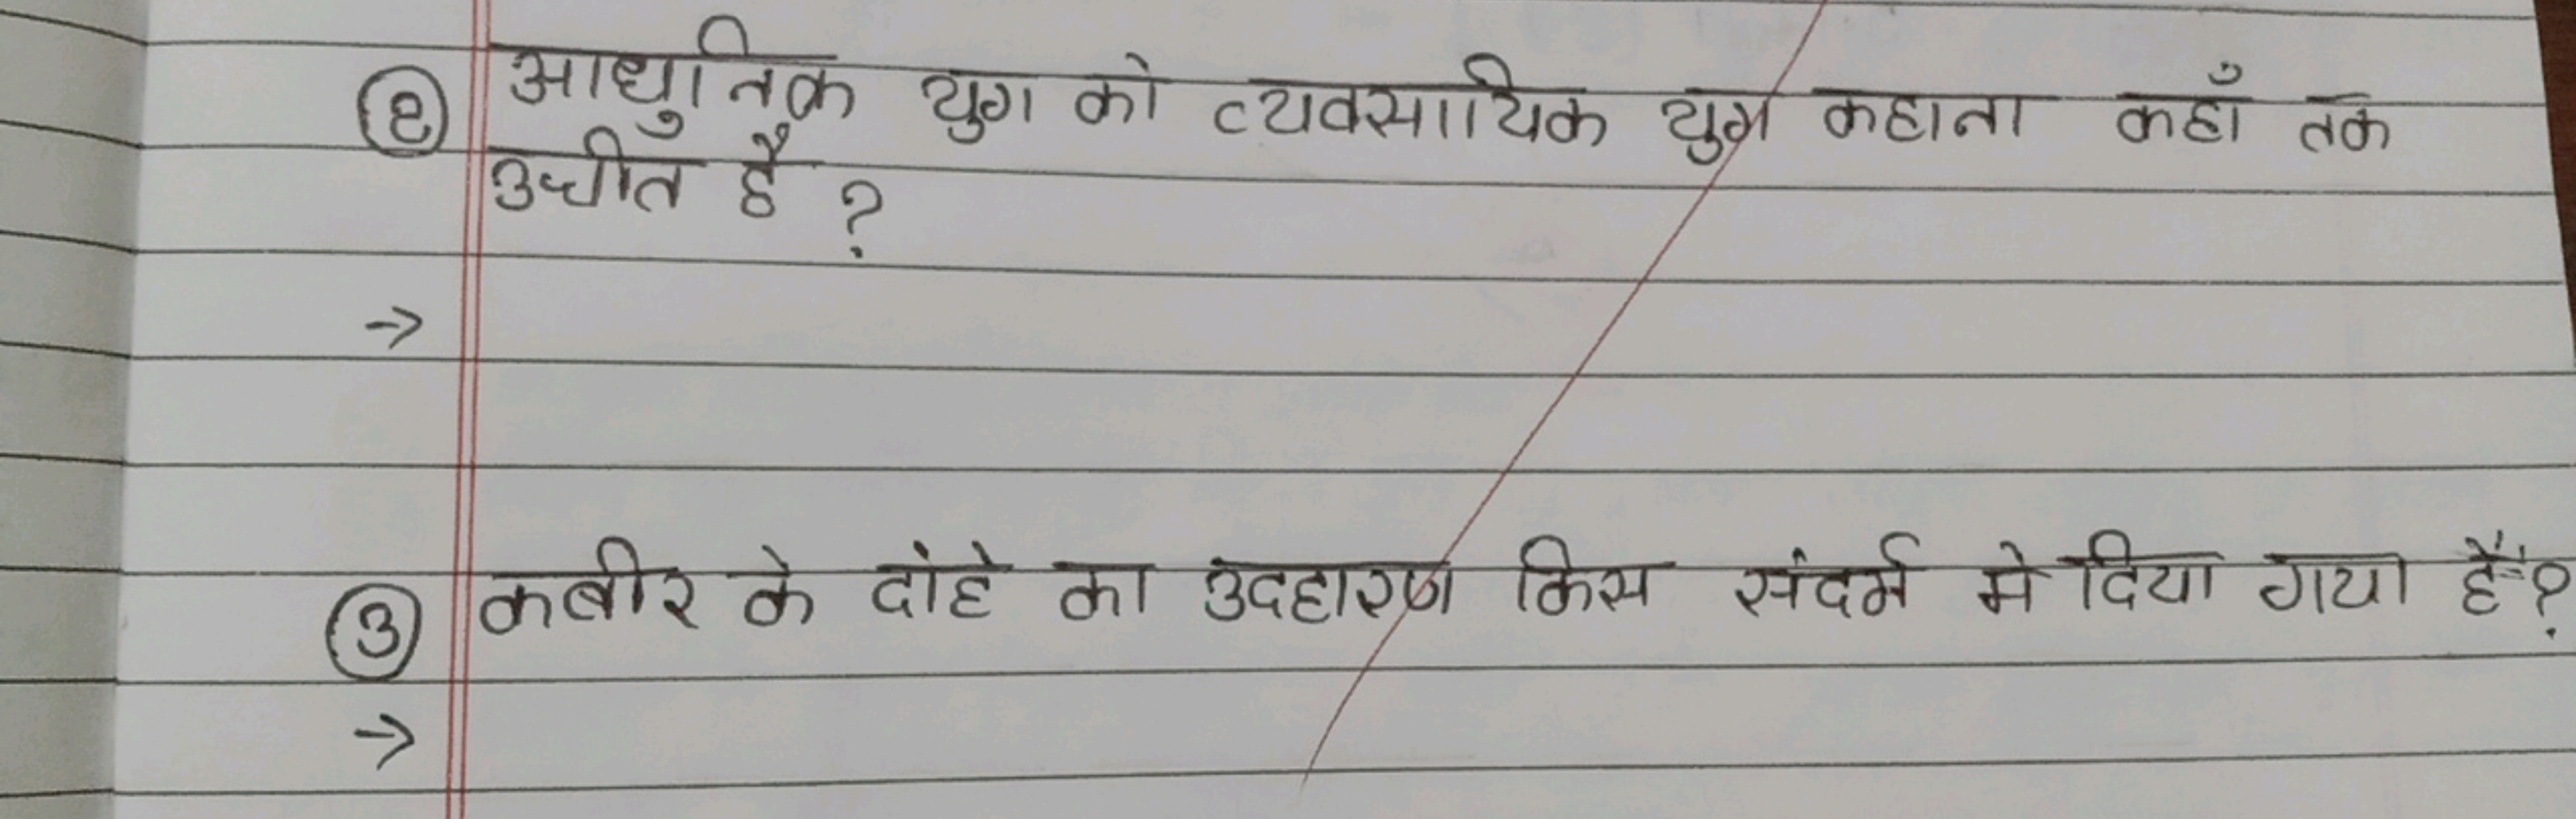 ② आधुनिक युग को व्यवसायिक युग कहाना कहाँ तक
उचीत है ?
→
③ कबीर के दांहे का उदहारण किस संदर्म मे दिया गया हैं?
→